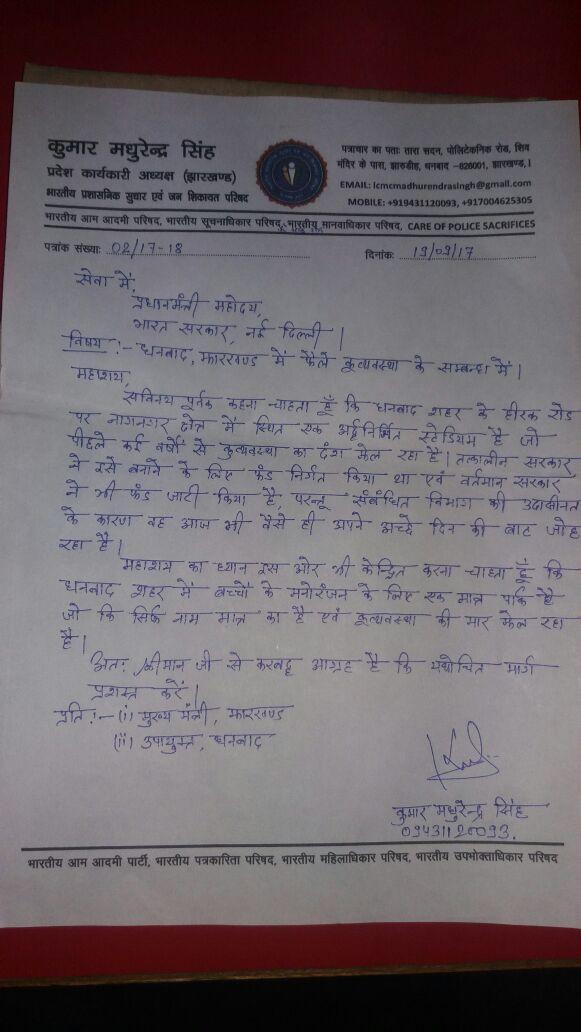 कुमार मधुरेन्द्र सिंह
प्रदेश कार्यकारी अध्यक्ष (झारखण्ड)
भारतीय प्रशासनिक सुधार एवं जन शिकायत परिषद
पत्राचार का पताः तारा सदन, पोलिटेकनिक रोड, शिव
मंदिर के पास, झारुडीह, धनबाद -826001, झारखण्ड,।
EMAIL: icmcmadhurendrasingh@gmail.com
MOBILE: +919431120093, +917004625305
भारतीय आम आदमी परिषद, भारतीय सूचनाधिकार परिषद, भारतीय मानवाधिकार परिषद, CARE OF POLICE SACRIFICES
पत्रांक संख्याः 02/17-18 दिनांकः 19/09/17
सेवा में,
प्रधानमंत्री महोदय,
भारत सरकार, नई दिल्ली।
विषय :- धनबाद, झारखण्ड में फैले कुव्यवस्था के सम्बन्ध में।
महाशय,
सविनय पूर्वक कहना चाहता हूँ कि धनबाद शहर के हीरक रोड
पर नागनगर क्षेत्र में स्थित एक अर्द्धनिर्मित स्टेडियम है जो
पीछले कई वर्षों से कुव्यवस्था का दंश झेल रहा है। तत्कालीन सरकार
ने इसे बनाने के लिए फंड निर्गत किया था एवं वर्तमान सरकार
ने भी फंड जारी किया है, परन्तू संबंधित विभाग की उदासीनत
के कारण वह आज भी वैसे ही अपने अच्छे दिन की बाट जोह
रहा है।
महाशय का ध्यान इस ओर भी केन्द्रित करना चाहता हूँ कि
धनबाद शहर में बच्चों के मनोरंजन के लिए एक मात्र पार्क है
जो कि सिर्फ नाम मात्र का है एवं कुव्यवस्था की मार झेल रहा
है।
अतः श्रीमान जी से करबद्ध आग्रह है कि यथोचित मार्ग
प्रशस्त करें।
प्रति :- (i) मुख्य मंत्री, झारखण्ड
(ii) उपायुक्त, धनबाद
कुमार मधुरेन्द्र सिंह
09431120093.
भारतीय आम आदमी पार्टी, भारतीय पत्रकारिता परिषद, भारतीय महिलाधिकार परिषद, भारतीय उपभोक्ताधिकार परिषद